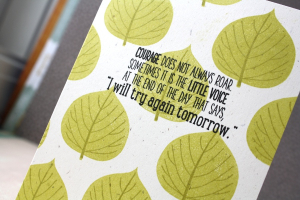 COURAGE DOES NOT ALWAYS ROAR.
SOMETIMES IT IS THE LITTLE VOICE
AT THE END OF THE DAY THAT SAYS,
"I will try again tomorrow."